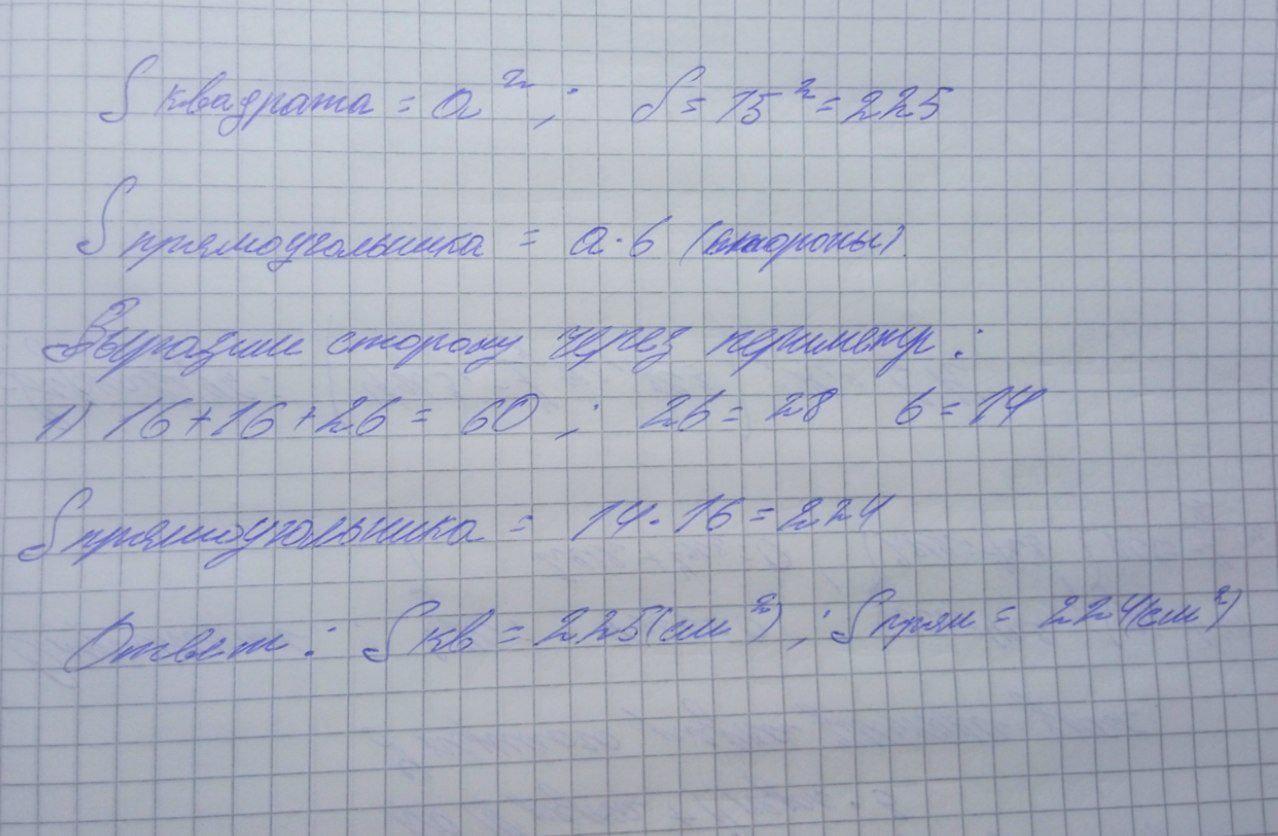 S квадрата = a² ; S = 15² = 225
S прямоугольника = a · b (стороны)
Выразим сторону через периметр :
1) 16 + 16 + 2b = 60 ; 2b = 28 b = 14
S прямоугольника = 14 · 16 = 224
Ответ : S кв = 225 (см²) ; S прям = 224 (см²)